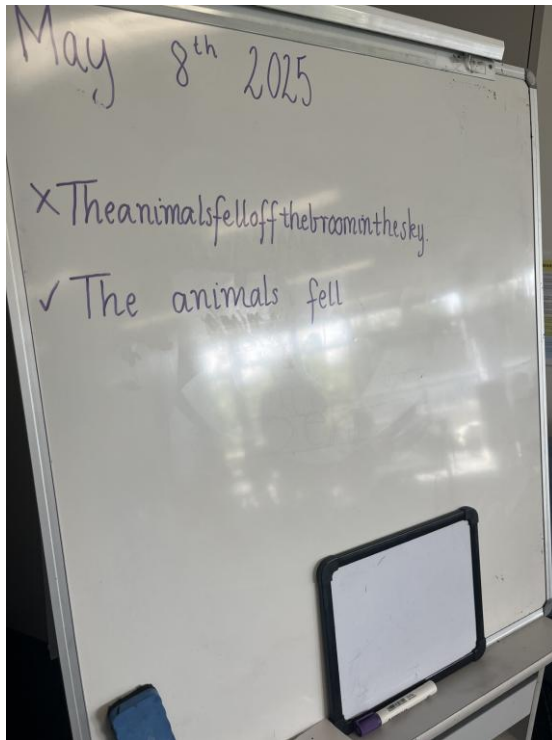 May 8th 2025
×Theanimalsfelloffthebroominthesky.
✓ The animals fell